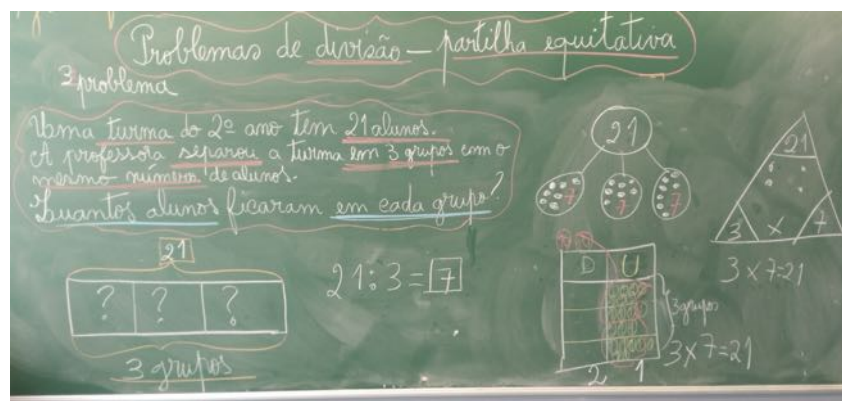 Problemas de divisão – partilha equitativa
3 problema
Uma turma do 2º ano tem 21 alunos.
A professora separou a turma em 3 grupos com o
mesmo número de alunos.
Quantos alunos ficaram em cada grupo?
21
? ? ?
3 grupos
21:3=7
21
7 7 7
D U
3 grupos
2 1
3x7=21
21
3 x 7
3x7=21